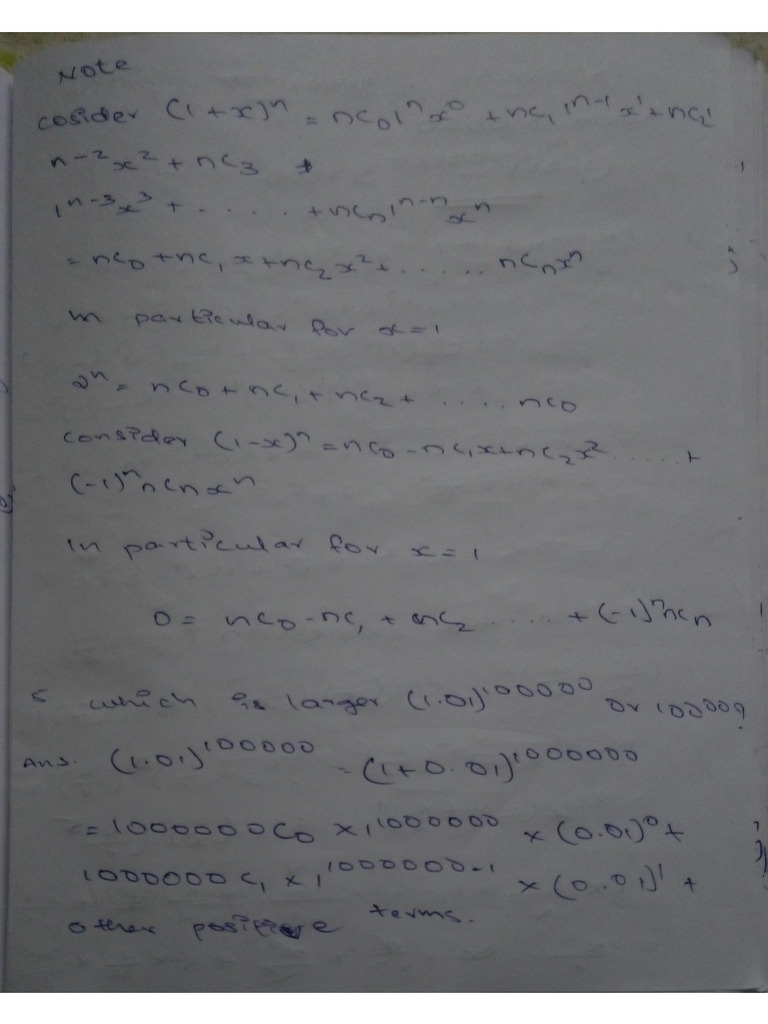 Note
cosider (1+x)ⁿ = nC₀1ⁿx⁰ + nC₁ 1ⁿ⁻¹x¹ + nC₂1
n-2x² + nC₃ +
1ⁿ⁻³x³ + ...... + nCₙ1ⁿ⁻ⁿxⁿ
= nC₀ + nC₁x + nC₂x² + ...... nCₙxⁿ
in particular for x = 1
2ⁿ = nC₀ + nC₁ + nC₂ + ..... nC0
consider (1-x)ⁿ = nC₀ - nC₁x + nC₂x² ..... +
(-1)ⁿnCₙxⁿ
In particular for x = 1
0 = nC₀ - nC₁ + nC₂ ..... + (-1)ⁿnCₙ
5 which is larger (1.01)¹⁰⁰⁰⁰⁰ or 10000?
Ans. (1.01)¹⁰⁰⁰⁰⁰ = (1+0.01)¹⁰⁰⁰⁰⁰⁰
= 1000000C₀ × 1¹⁰⁰⁰⁰⁰⁰ × (0.01)⁰ +
1000000C₁ × 1¹⁰⁰⁰⁰⁰⁰⁻¹ × (0.01)¹ +
other positive terms.